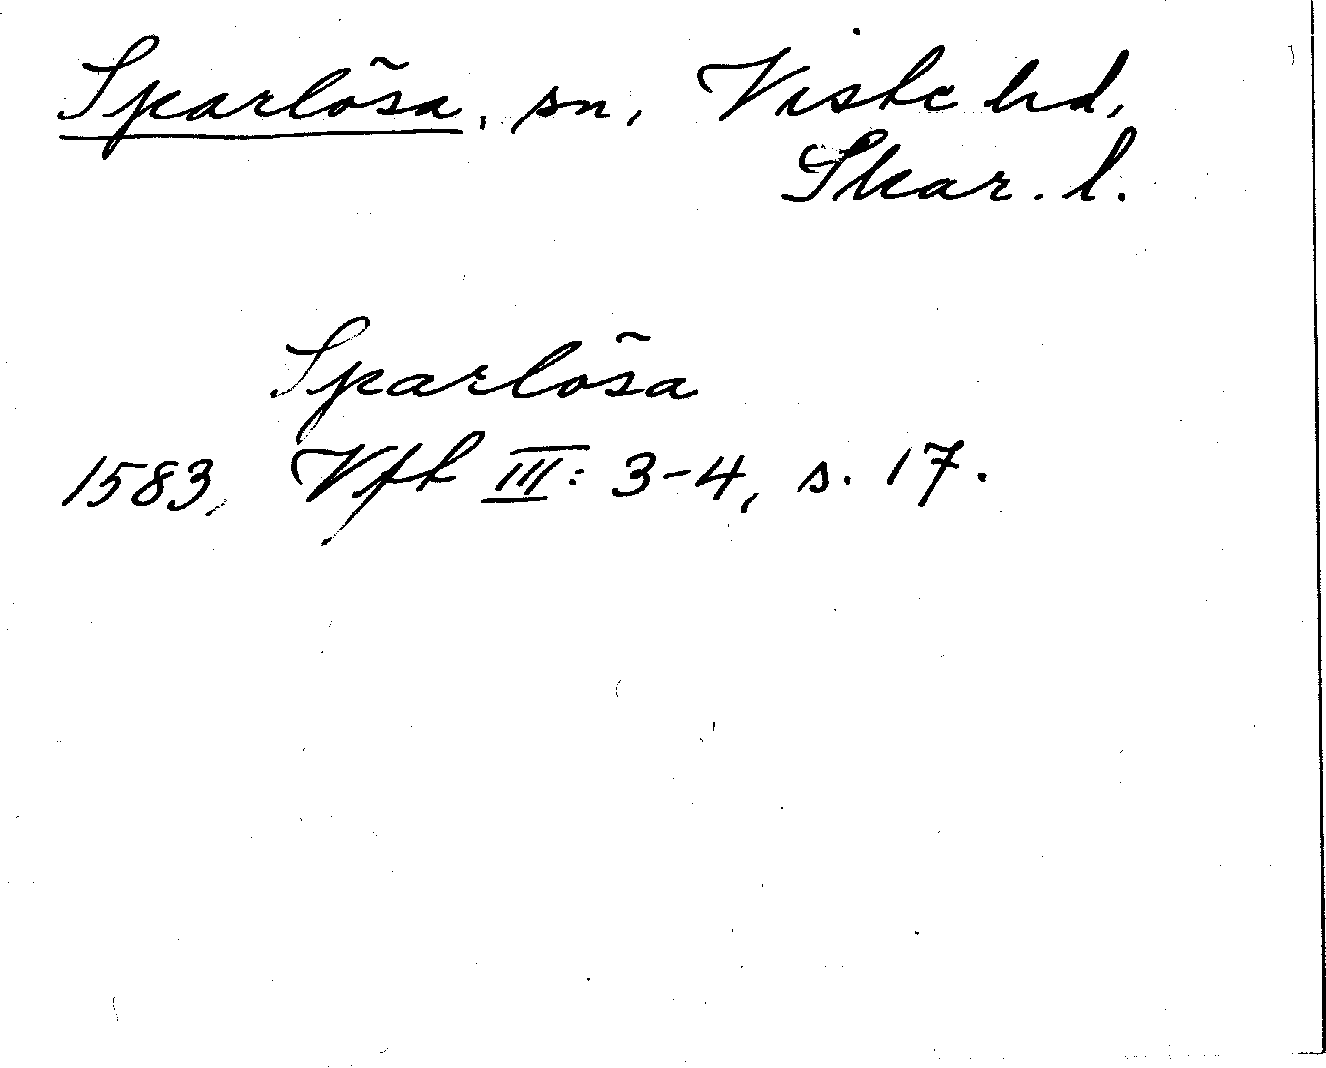 Sparlösa, sn, Viste hd,
Skar. l.
Sparlösa
1583, Vft III: 3-4, s. 17.